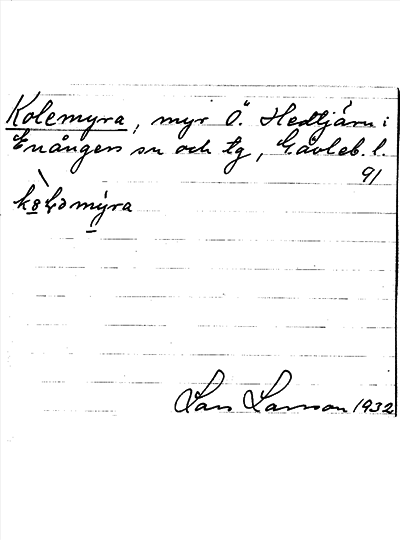 Kolemyra, myr Ö. Hedtjärn i
Enångers sn och tg, Gävleb. l.
91
myra
Lars Larsson 1932